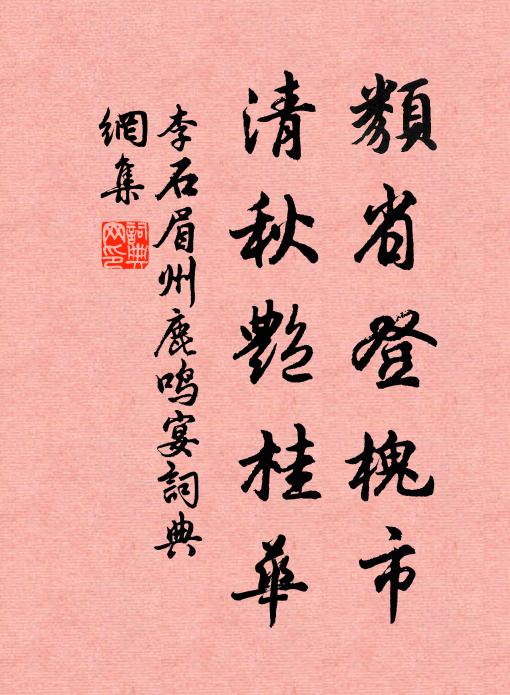 類省登槐市
清秋艷桂華
李石眉州鹿鳴宴詞典
網集
詞典网印